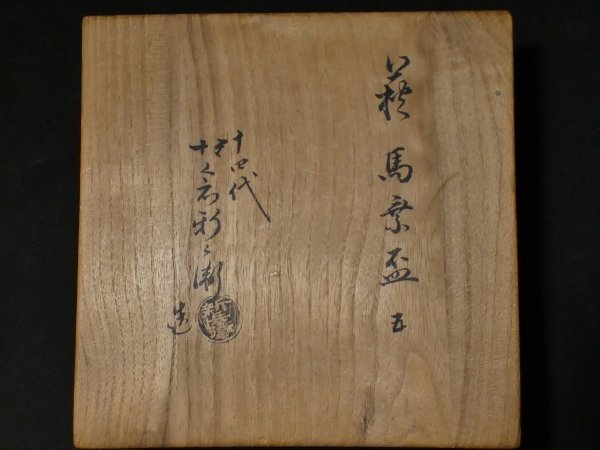 萩 馬乗盃 五
十四代
坂倉新兵衛
造